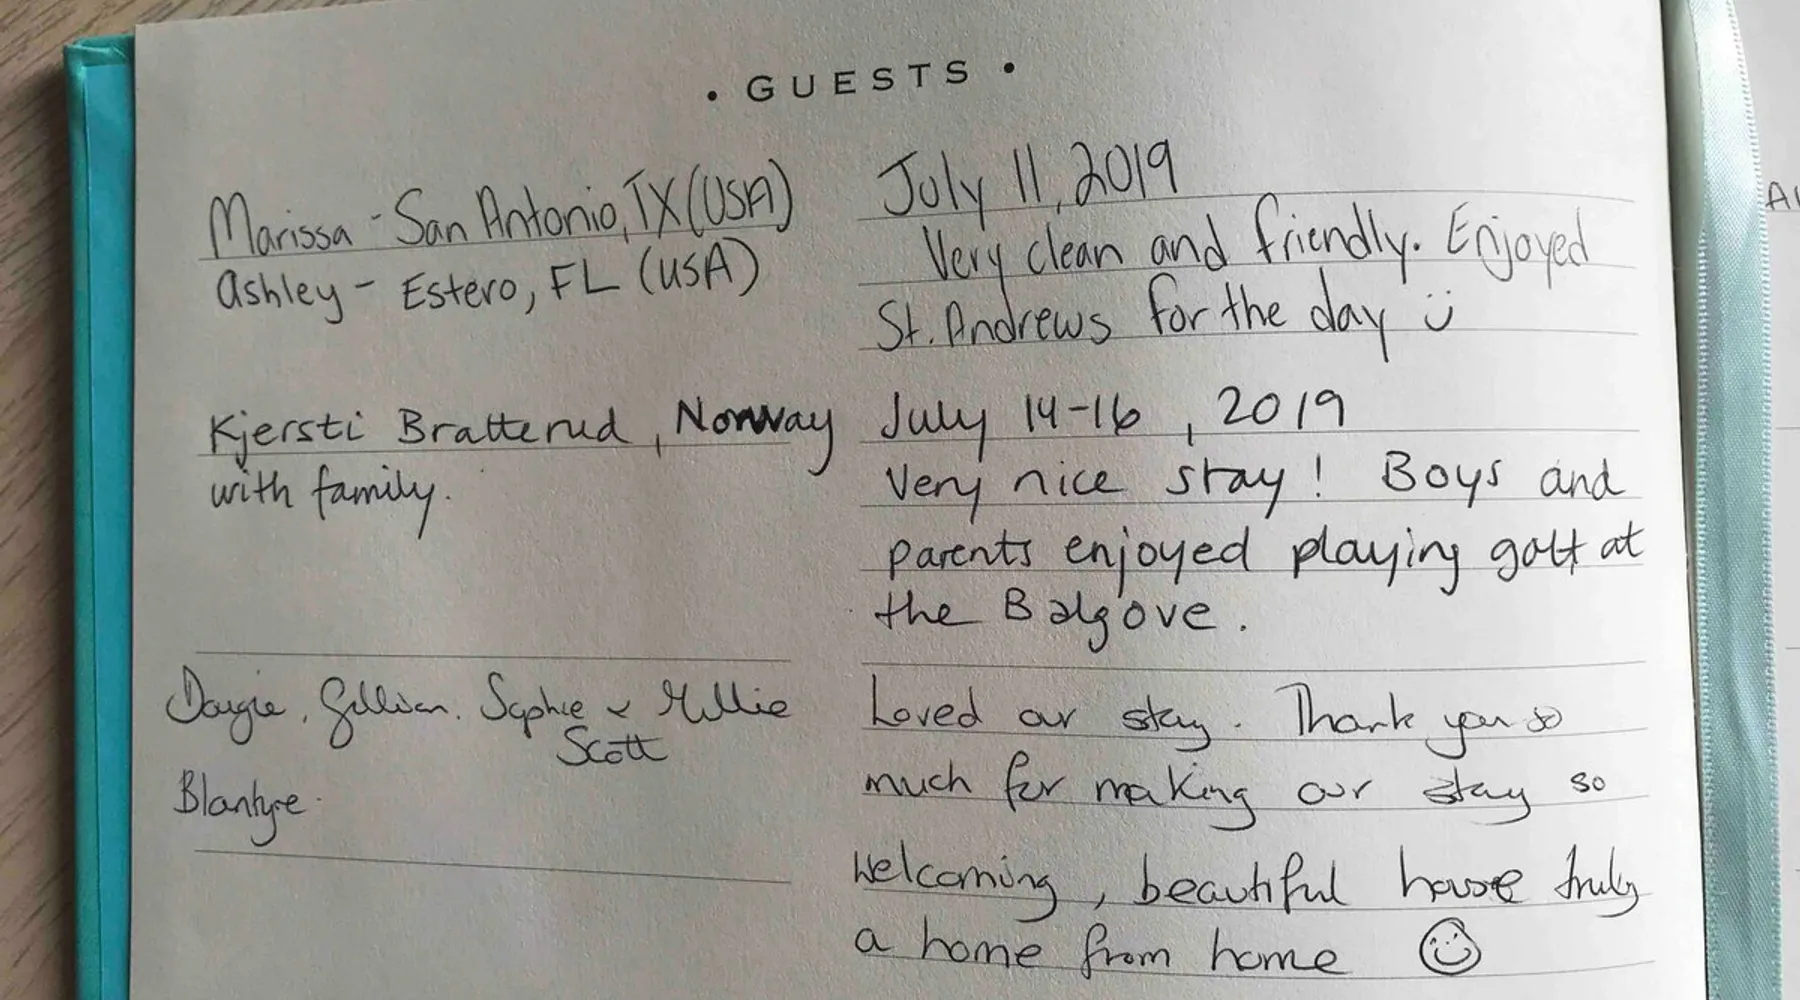 • GUESTS •
Marissa - San Antonio, TX (USA)
Ashley - Estero, FL (USA)
July 11, 2019
Very clean and friendly. Enjoyed
St. Andrews for the day
Kjersti Bratterud, Norway
with family.
July 14-16, 2019
Very nice stay! Boys and
parents enjoyed playing golf at
the Balgove.
Dougie, Gillian, Sophie & Millie
Scott
Blantyre.
Loved our stay. Thank you so
much for making our stay so
welcoming, beautiful house truly
a home from home